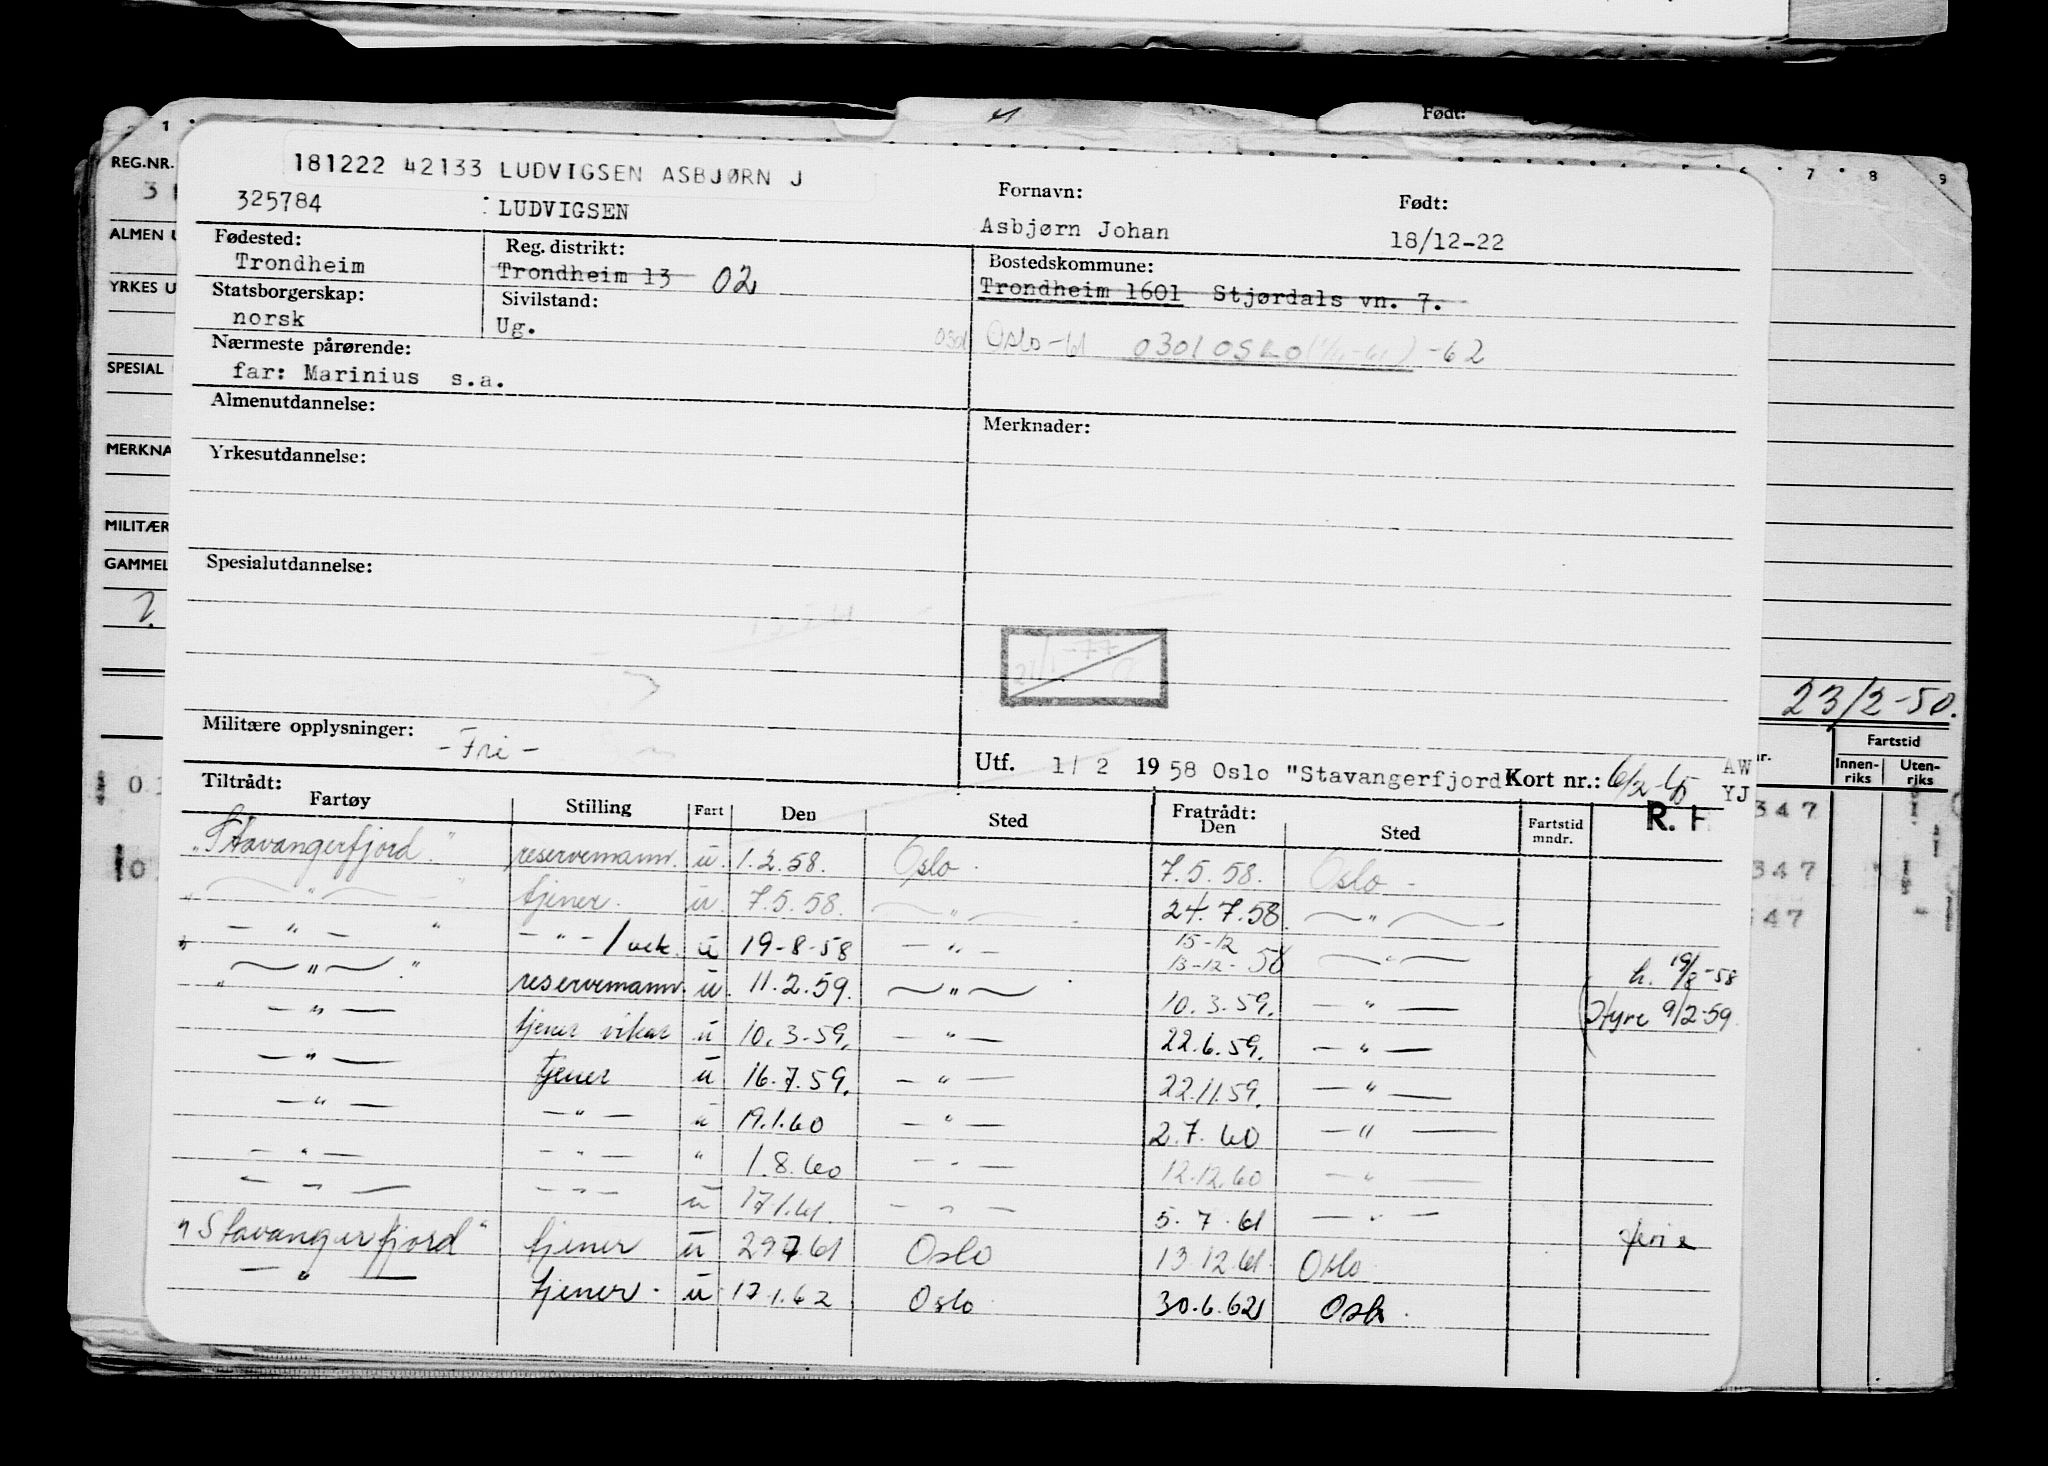 Født:
1
REG.NR.
3
ALMEN U
YRKES U
SPESIAL
MERKNA
MILITÆR
GAMMEL
7 8 9
181222 42133 LUDVIGSEN ASBJØRN J
325784 LUDVIGSEN
Fornavn: Født:
Asbjørn Johan 18/12-22
Fødested: Reg. distrikt: Bostedskommune:
Trondheim Trondheim 13 02 Trondheim 1601 Stjørdals vn. 7.
Statsborgerskap: Sivilstand:
norsk Ug. 0301 Oslo-61 0301 OSLO -62
Nærmeste pårørende:
far: Marinius s.a.
Almenutdannelse: Merknader:
Yrkesutdannelse:
Spesialutdannelse:
Militære opplysninger: -Fri-
Utf. 1/2 1958 Oslo "Stavangerfjord Kort nr.: 6/2-65 AW
YJ
R. H
23/2-50.
Fartstid
Innen-riks Uten-riks
347
347
347
Tiltrådt: Fratrådt:
Fartøy Stilling Fart Den Sted Den Sted Fartstid mndr.
"Stavangerfjord" reservemann. u. 1.2.58. Oslo. 7.5.58. Oslo -
— " — tjener. u. 7.5.58. — " — 24.7.58. — " —
— " — — " — / vik. u 19-8-58 — " — 15-12 13-12-58 — " — h. 19/8-58
— " — reservemann. u. 11.2.59. — " — 10.3.59. — " — Hyre 9/2-59.
— " — tjener vikar u 10.3-59. — " — 22.6.59. — " —
— " — tjener u 16.7.59. — " — 22.11.59. — " —
— " — — " — " 19.1.60 — " — 2.7.60 — " —
— " — — " — " 1.8.60 — " — 12.12.60 — " —
— " — — " — u 17.1.61. — " — 5.7.61 — " — ferie
"Stavangerfjord" tjener u 29 7 61 Oslo 13.12.61. Oslo
— " — tjener. u 17.1.62 Oslo 30.6.62 Oslo.